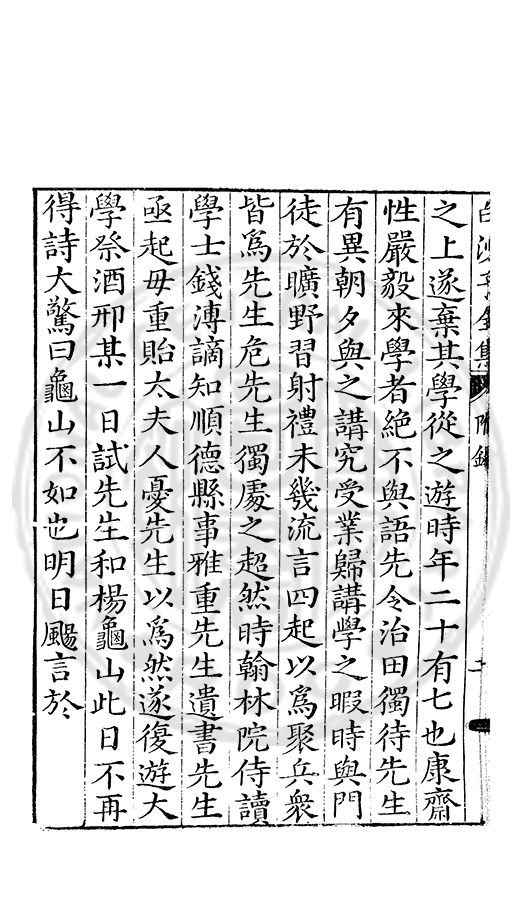 之上遂棄其學從之遊時年二十有七也康齋
性嚴毅來學者絶不與語先令治田獨待先生
有異朝夕與之講究受業歸講學之暇時與門
徒於曠野習射禮未幾流言四起以爲聚兵衆
皆爲先生危先生獨處之超然時翰林院侍讀
學士錢溥謫知順德縣事雅重先生遺書先生
亟起毋重貽太夫人憂先生以爲然遂復遊大
學祭酒邢某一日試先生和楊龜山此日不再
得詩大驚曰龜山不如也明日颺言於